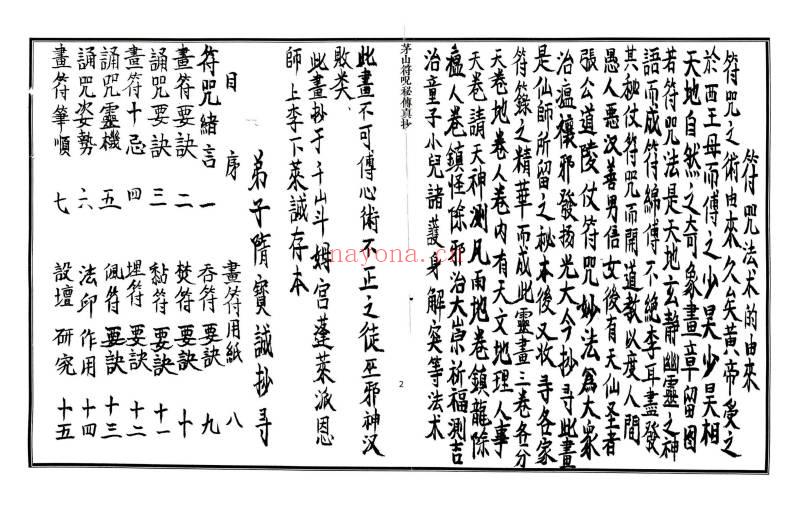 符咒法术的由来
符咒之術由來久矣黃帝受之
於西王母而傅之少昊少昊相
天地自然之奇象畫章留图
若符咒法是天地玄靜幽靈之神
語而成符綿傅不絕李耳盡發
其秘仗符咒而開道教以度人間
愚人恶汉善男信女後有天仙圣者
張公道陵仗符咒妙法爲大衆
治瘟禳邪發扬光大今抄寻此畫
是仙師所留之秘本後又收寻各家
符籙之精華而成此靈畫三卷各分
天卷地卷人卷内有天文地理人事
天卷請天神测风雨地卷鎮龍除
瘟人卷鎮怪除邪治大祟祈福测吉
治童子小兒諸護身解灾等法术
茅山符呪秘傳真抄
2
此畫不可傅心術不正之徒巫邪神汉
敗类
此畫抄于千山斗姆宫蓬萊派恩
師上李下萊誠存本
弟子隋寶誠抄寻
目序
符咒緒言 一
畫符要訣 二
誦咒要訣 三
畫符十忌 四
誦咒靈機 五
誦咒姿勢 六
畫符筆順 七
畫符用紙 八
吞符要訣 九
焚符要訣 十
黏符要訣 十一
埋符要訣 十二
佩符要訣 十三
法印作用 十四
設壇研究 十五
nayona.cn